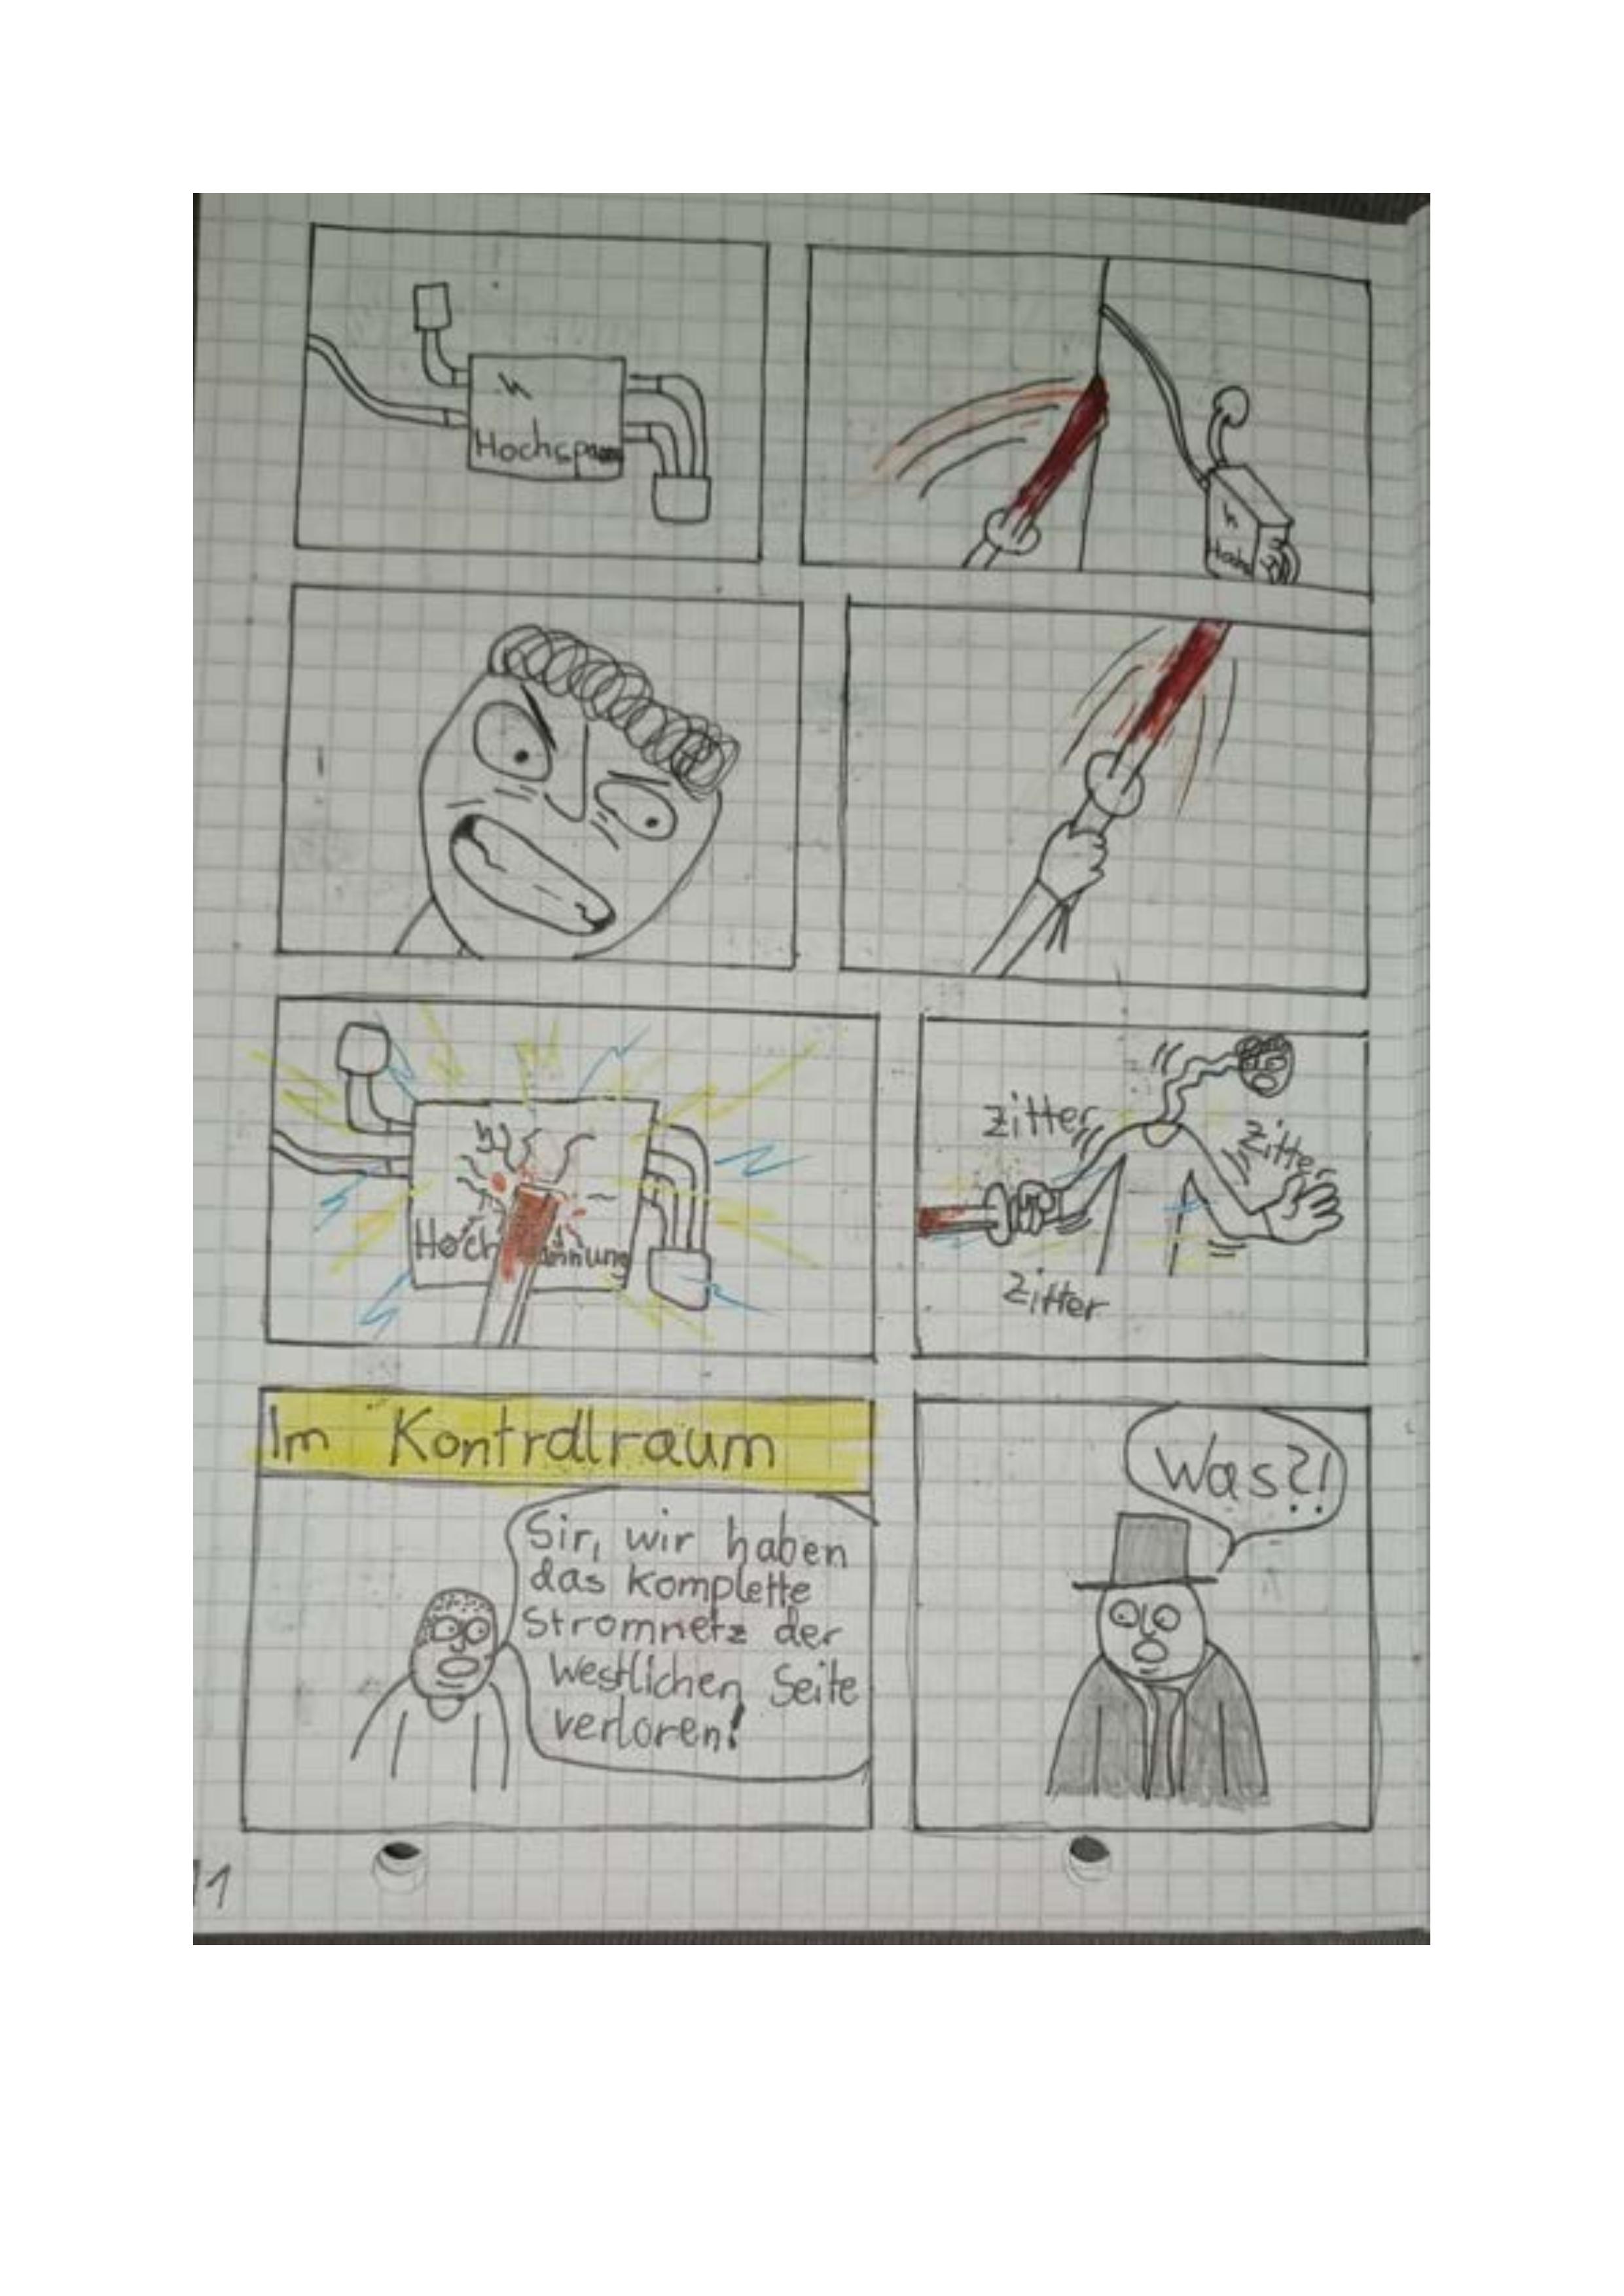 Hochspann
Hochs
Hoch annung
zitter
zitter
zitter
Im Kontrollraum
Sir, wir haben
das komplette
Stromnetz der
Westlichen Seite
verloren!
Was?!
11